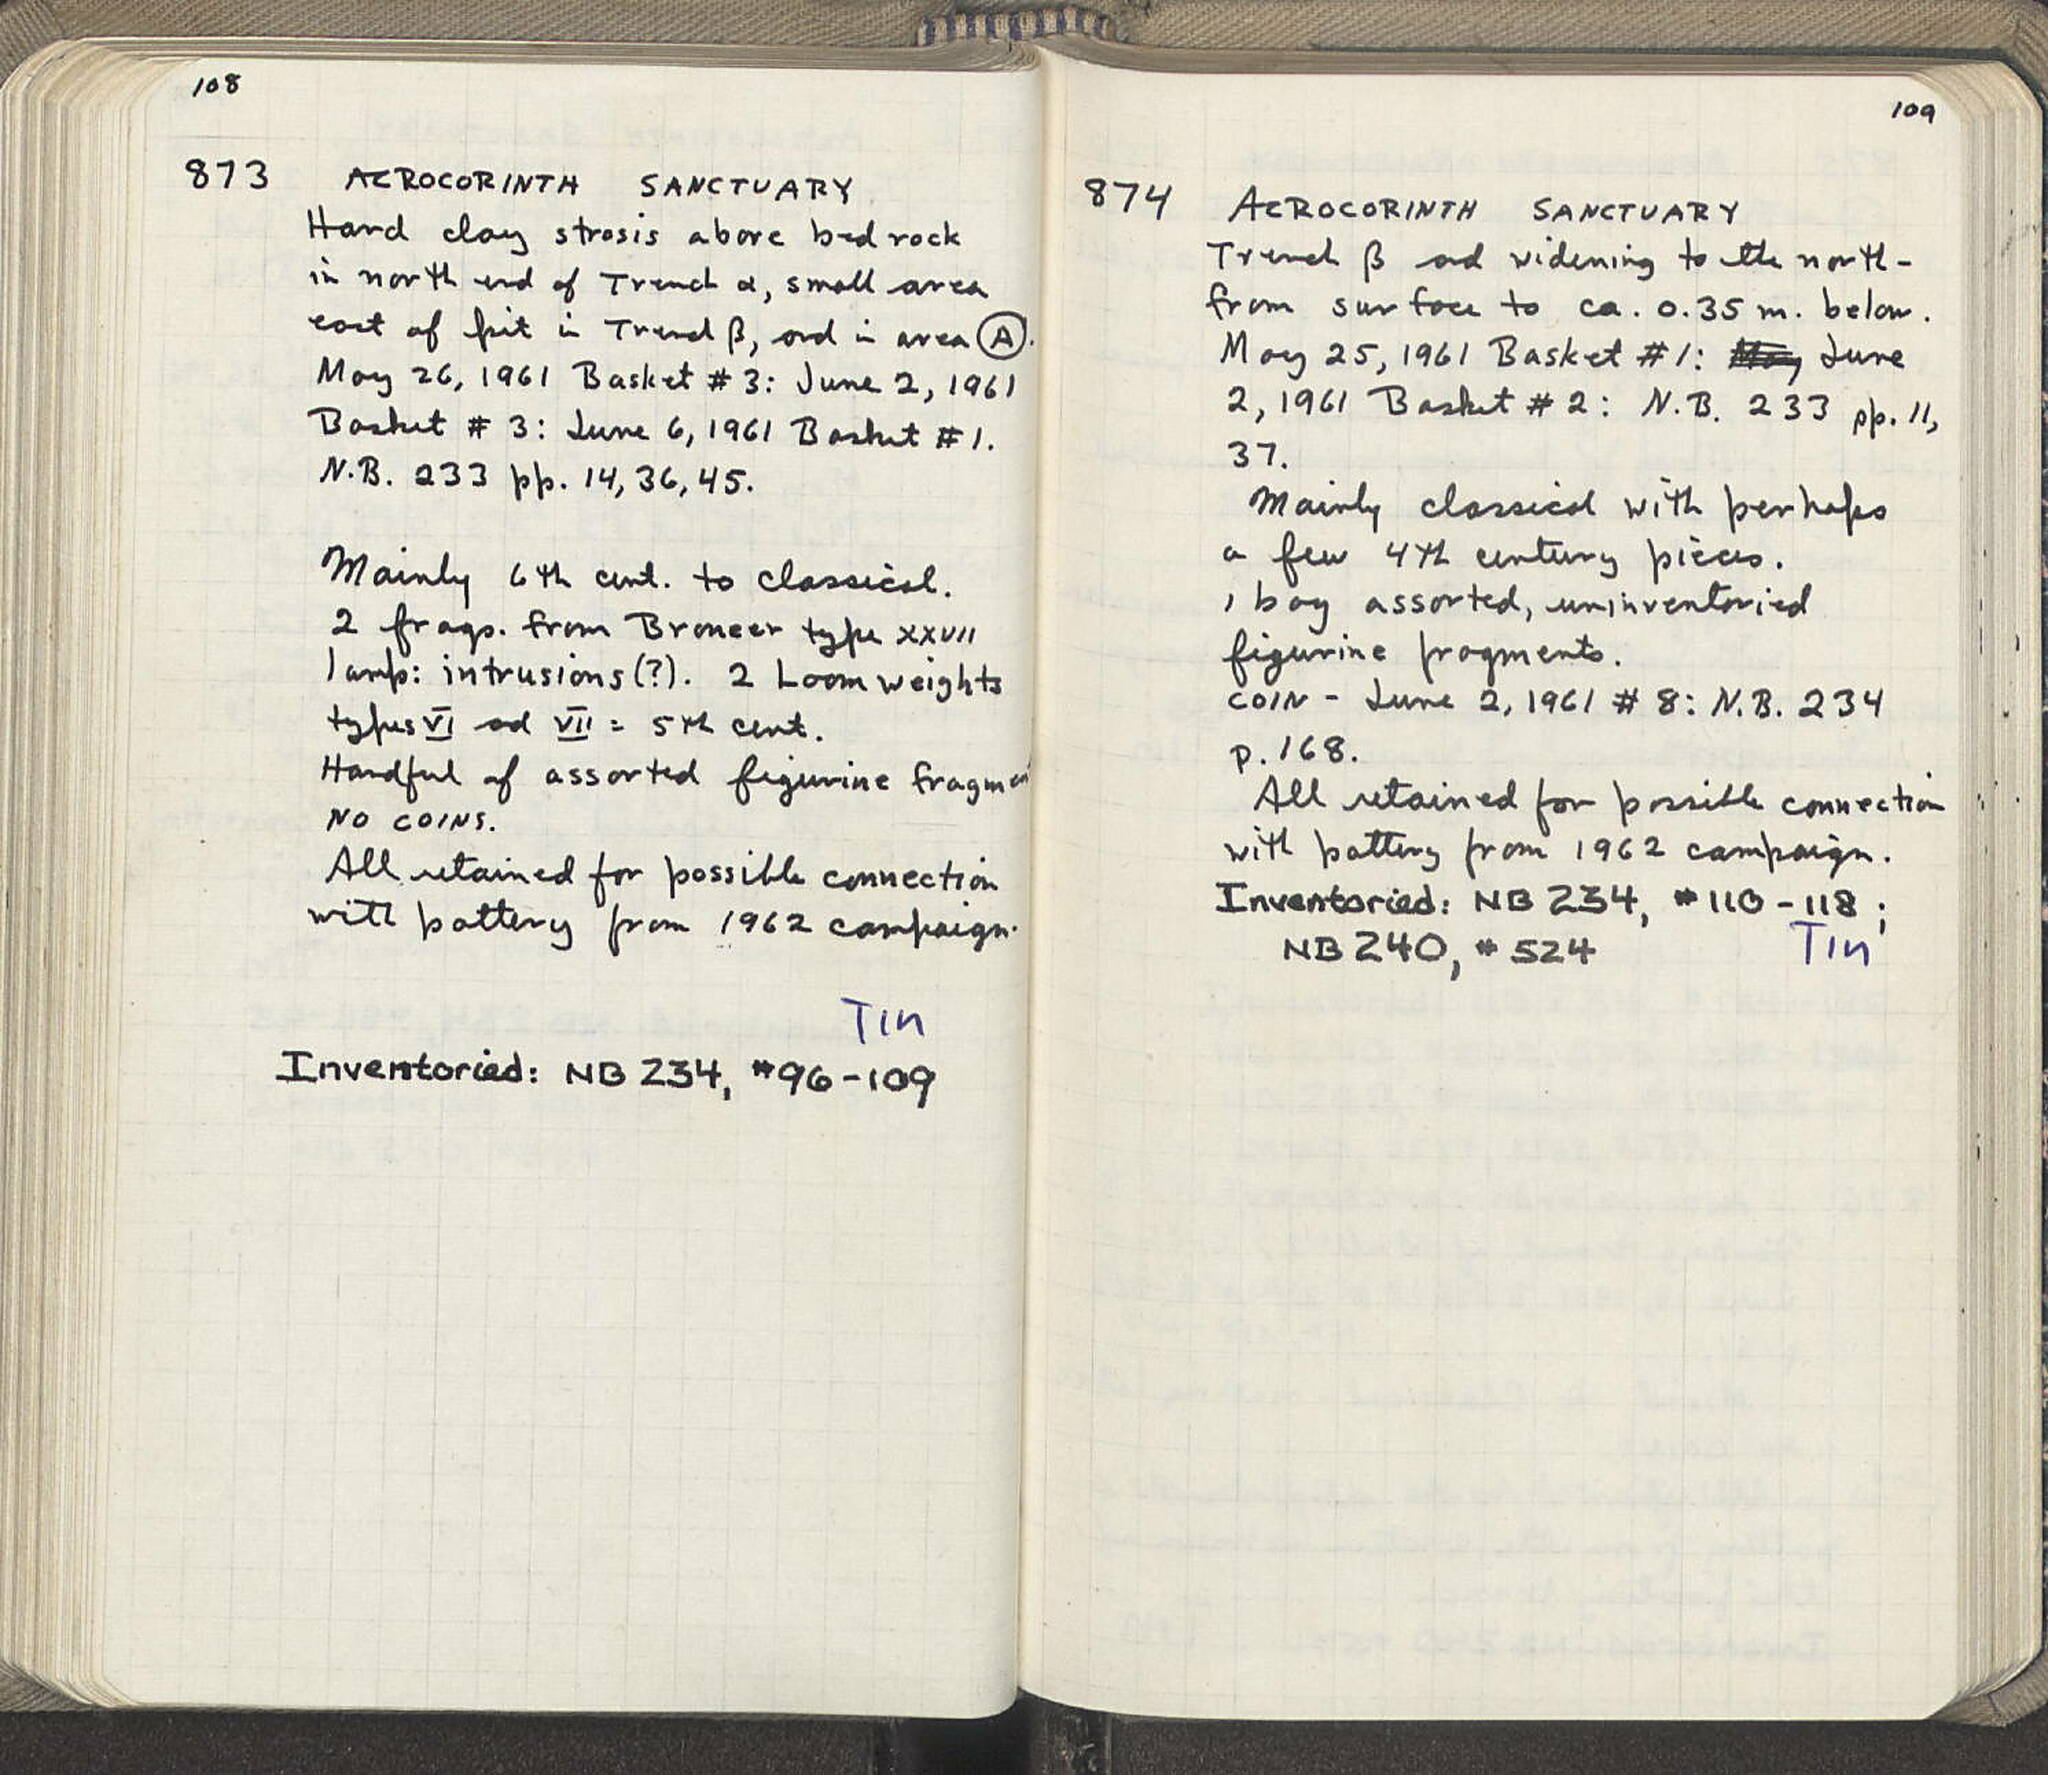 108
873 ACROCORINTH SANCTUARY
Hard clay strosis above bedrock
in north end of Trench α, small area
east of pit in Trench β, and in area Ⓐ.
May 26, 1961 Basket # 3: June 2, 1961
Basket # 3: June 6, 1961 Basket #1.
N.B. 233 pp. 14, 36, 45.
Mainly 6th cent. to classical.
2 frags. from Broneer type XXVII
lamp: intrusions(?). 2 Loomweights
types VI and VII = 5th cent.
Handful of assorted figurine fragmen
NO COINS.
All retained for possible connection
with pottery from 1962 campaign.
Tin
Inventoried: NB 234, #96-109
109
874 ACROCORINTH SANCTUARY
Trench β and widening to the north-
from surface to ca. 0.35 m. below.
May 25, 1961 Basket #1: May June
2, 1961 Basket # 2: N.B. 233 pp. 11,
37.
Mainly classical with perhaps
a few 4th century pieces.
1 bag assorted, uninventoried
figurine fragments.
COIN - June 2, 1961 # 8: N.B. 234
p. 168.
All retained for possible connection
with pottery from 1962 campaign.
Inventoried: NB 234, #110-118;
NB 240, #524 Tin